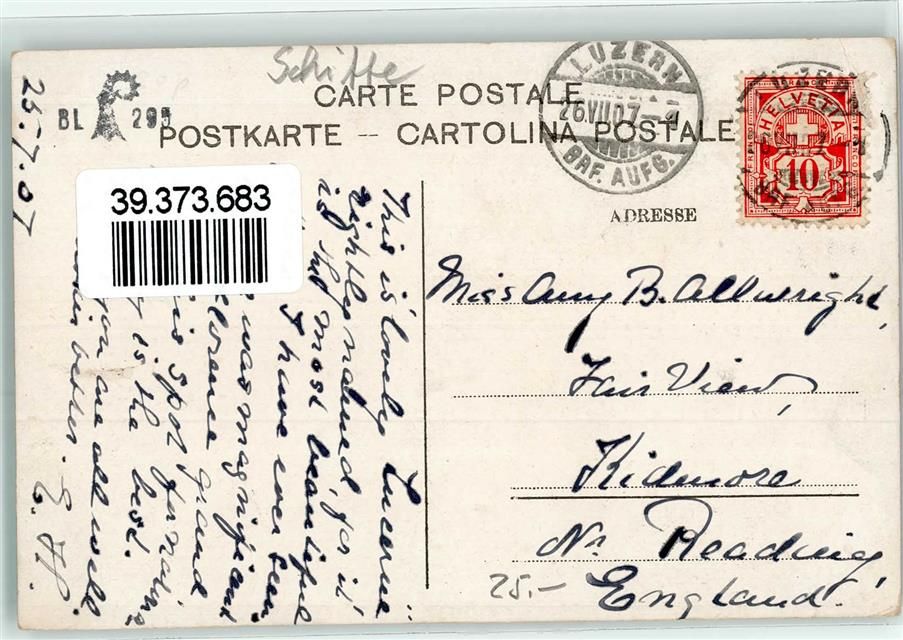 Schiffe
CARTE POSTALE
POSTKARTE -- CARTOLINA POSTALE
BL 295
LUZERN
26.VII.07.
BRF. AUFG.
HELVETIA
FRANCO
10
39.373.683
ADRESSE
Miss Amy B. Allwright,
Fair View,
Kidmore
Nr. Reading
England.
25.-
25.7.07
This is lovely Lucerne
rightly named, for it
is the most beautiful
I have ever seen
was magnificent
grand
is spot for
is the best.
are all well
better.
E. H.